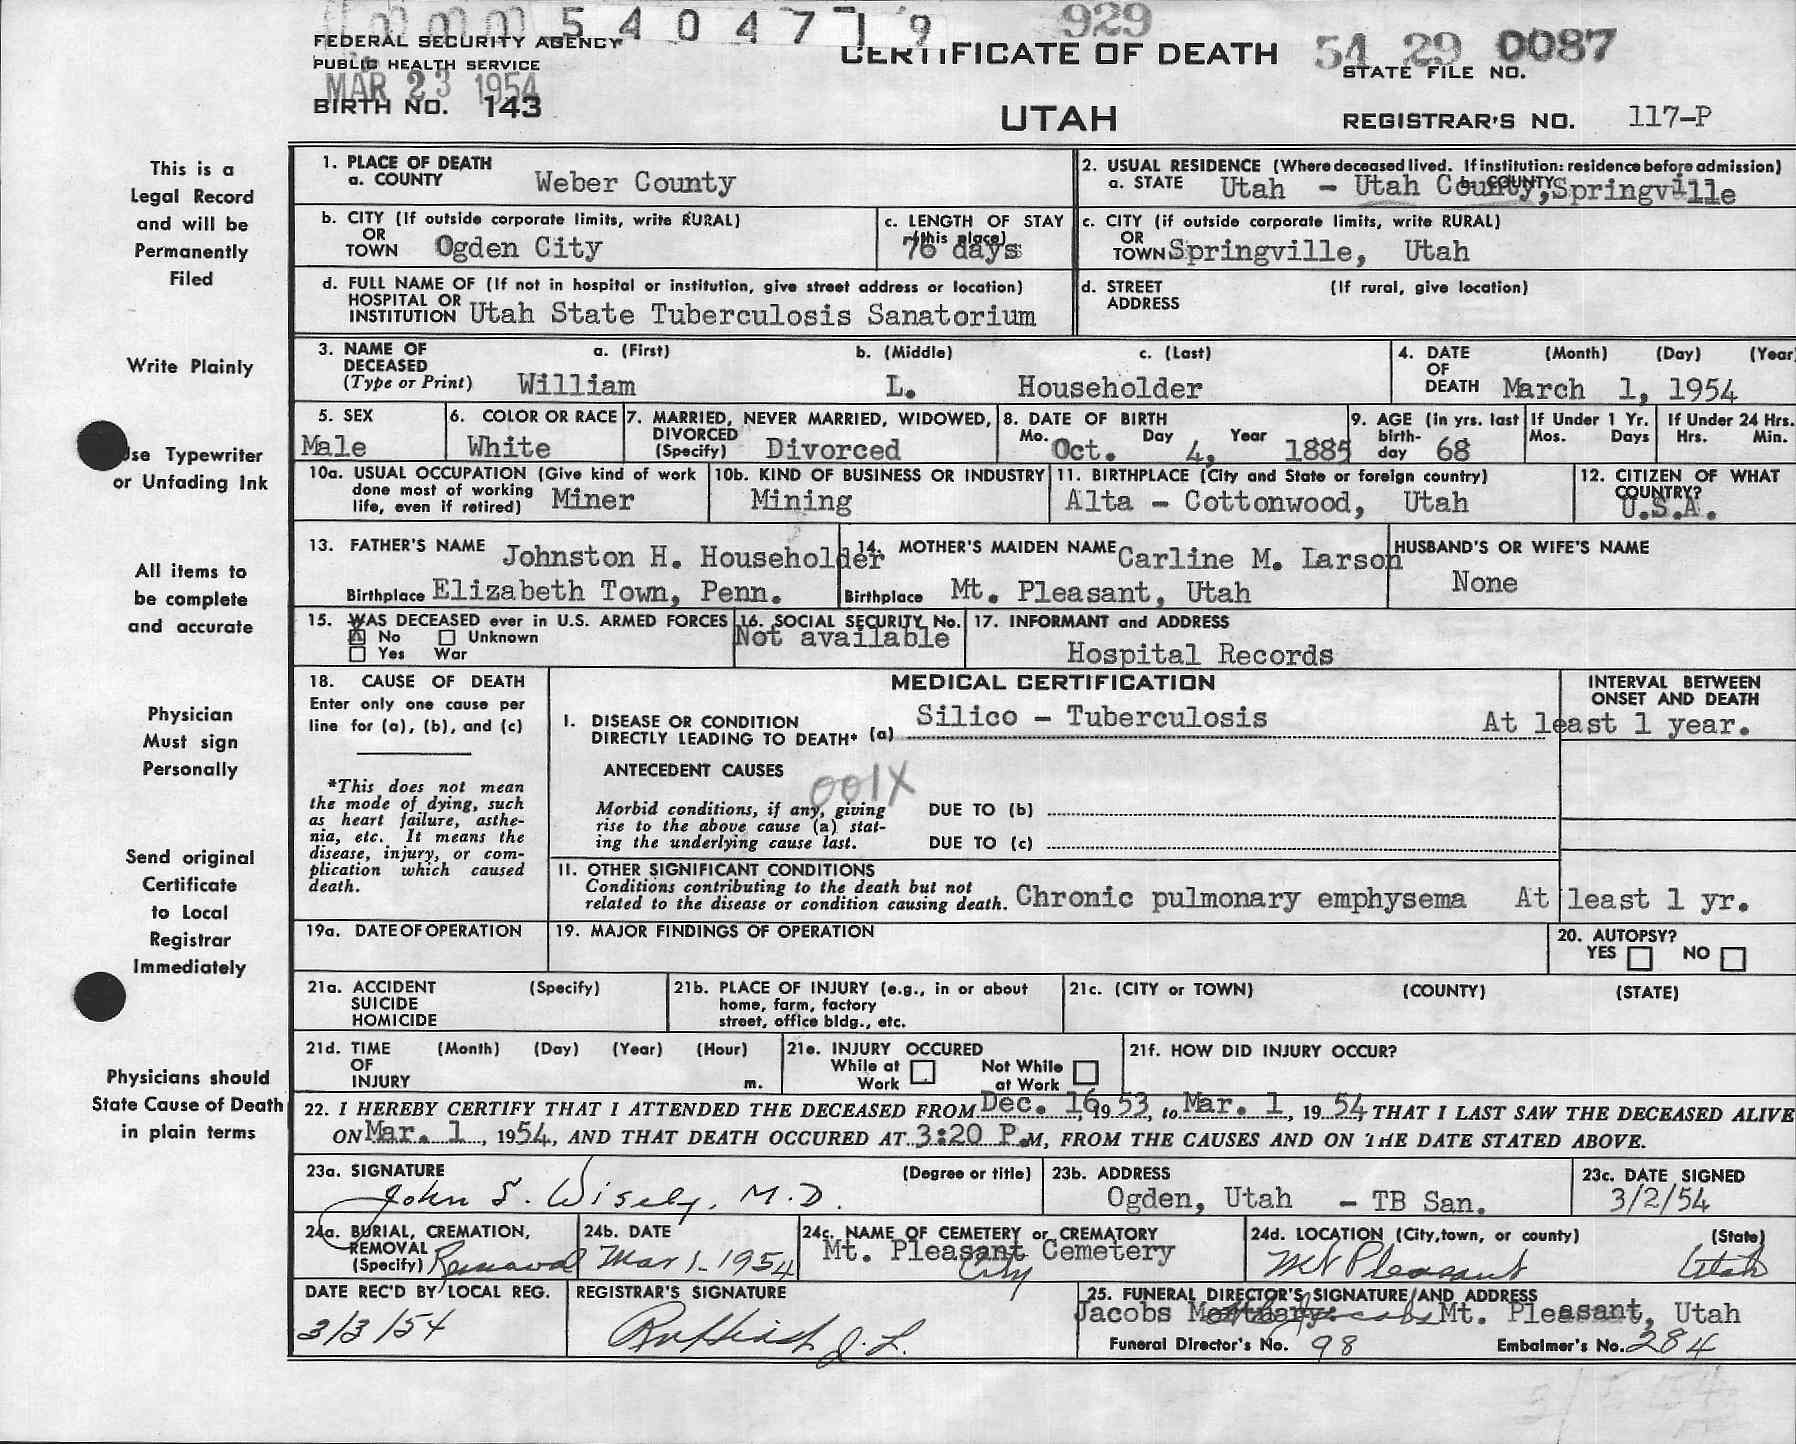 5 4 0 4 7 1 9
929
FEDERAL SECURITY AGENCY
PUBLIC HEALTH SERVICE
MAR 23 1954
BIRTH NO. 143
CERTIFICATE OF DEATH
UTAH
54 29 0087
STATE FILE NO.
REGISTRAR'S NO. 117-P
This is a
Legal Record
and will be
Permanently
Filed
Write Plainly
Use Typewriter
or Unfading Ink
All items to
be complete
and accurate
Physician
Must sign
Personally
Send original
Certificate
to Local
Registrar
Immediately
Physicians should
State Cause of Death
in plain terms
1. PLACE OF DEATH
a. COUNTY Weber County
2. USUAL RESIDENCE (Where deceased lived. If institution: residence before admission)
a. STATE Utah - b. COUNTY Utah County, Springville
b. CITY (If outside corporate limits, write RURAL)
OR
TOWN Ogden City
c. LENGTH OF STAY
(this place)
76 days
c. CITY (if outside corporate limits, write RURAL)
OR
TOWN Springville, Utah
d. FULL NAME OF (If not in hospital or institution, give street address or location)
HOSPITAL OR
INSTITUTION Utah State Tuberculosis Sanatorium
d. STREET (If rural, give location)
ADDRESS
3. NAME OF a. (First) b. (Middle) c. (Last)
DECEASED
(Type or Print) William L. Householder
4. DATE (Month) (Day) (Year
OF
DEATH March 1, 1954
5. SEX
Male
6. COLOR OR RACE
White
7. MARRIED, NEVER MARRIED, WIDOWED,
DIVORCED
(Specify) Divorced
8. DATE OF BIRTH
Mo. Day Year
Oct. 4, 1885
9. AGE (in yrs. last
birth-
day 68
If Under 1 Yr.
Mos. Days
If Under 24 Hrs.
Hrs. Min.
10a. USUAL OCCUPATION (Give kind of work
done most of working
life, even if retired) Miner
10b. KIND OF BUSINESS OR INDUSTRY
Mining
11. BIRTHPLACE (City and State or foreign country)
Alta - Cottonwood, Utah
12. CITIZEN OF WHAT
COUNTRY?
U.S.A.
13. FATHER'S NAME Johnston H. Householder
Birthplace Elizabeth Town, Penn.
14. MOTHER'S MAIDEN NAME Carline M. Larson
Birthplace Mt. Pleasant, Utah
HUSBAND'S OR WIFE'S NAME
None
15. WAS DECEASED ever in U.S. ARMED FORCES
X No Unknown
Yes War
16. SOCIAL SECURITY No.
Not available
17. INFORMANT and ADDRESS
Hospital Records
18. CAUSE OF DEATH
Enter only one cause per
line for (a), (b), and (c)
*This does not mean
the mode of dying, such
as heart failure, asthe-
nia, etc. It means the
disease, injury, or com-
plication which caused
death.
MEDICAL CERTIFICATION
INTERVAL BETWEEN
ONSET AND DEATH
I. DISEASE OR CONDITION
DIRECTLY LEADING TO DEATH* (a) Silico - Tuberculosis At least 1 year.
ANTECEDENT CAUSES
001X
Morbid conditions, if any, giving
rise to the above cause (a) stat-
ing the underlying cause last.
DUE TO (b)
DUE TO (c)
II. OTHER SIGNIFICANT CONDITIONS
Conditions contributing to the death but not
related to the disease or condition causing death. Chronic pulmonary emphysema At least 1 yr.
19a. DATE OF OPERATION
19. MAJOR FINDINGS OF OPERATION
20. AUTOPSY?
YES NO
21a. ACCIDENT (Specify)
SUICIDE
HOMICIDE
21b. PLACE OF INJURY (e.g., in or about
home, farm, factory
street, office bldg., etc.
21c. (CITY or TOWN) (COUNTY) (STATE)
21d. TIME (Month) (Day) (Year) (Hour)
OF
INJURY m.
21e. INJURY OCCURED
While at Work
Not While at Work
21f. HOW DID INJURY OCCUR?
22. I HEREBY CERTIFY THAT I ATTENDED THE DECEASED FROM Dec. 16, 1953, to Mar. 1, 1954, THAT I LAST SAW THE DECEASED ALIVE
ON Mar. 1, 1954, AND THAT DEATH OCCURED AT 3:20 P.M, FROM THE CAUSES AND ON THE DATE STATED ABOVE.
23a. SIGNATURE (Degree or title)
John S. Wisely, M.D.
23b. ADDRESS
Ogden, Utah - TB San.
23c. DATE SIGNED
3/2/54
24a. BURIAL, CREMATION,
REMOVAL
(Specify) Removal
24b. DATE
Mar 1 - 1954
24c. NAME OF CEMETERY or CREMATORY
Mt. Pleasant Cemetery
City
24d. LOCATION (City, town, or county) (State)
Mt Pleasant Utah
DATE REC'D BY LOCAL REG.
3/3/54
REGISTRAR'S SIGNATURE
25. FUNERAL DIRECTOR'S SIGNATURE AND ADDRESS
Jacobs Mortuary Mt. Pleasant, Utah
Funeral Director's No. 98
Embalmer's No. 284